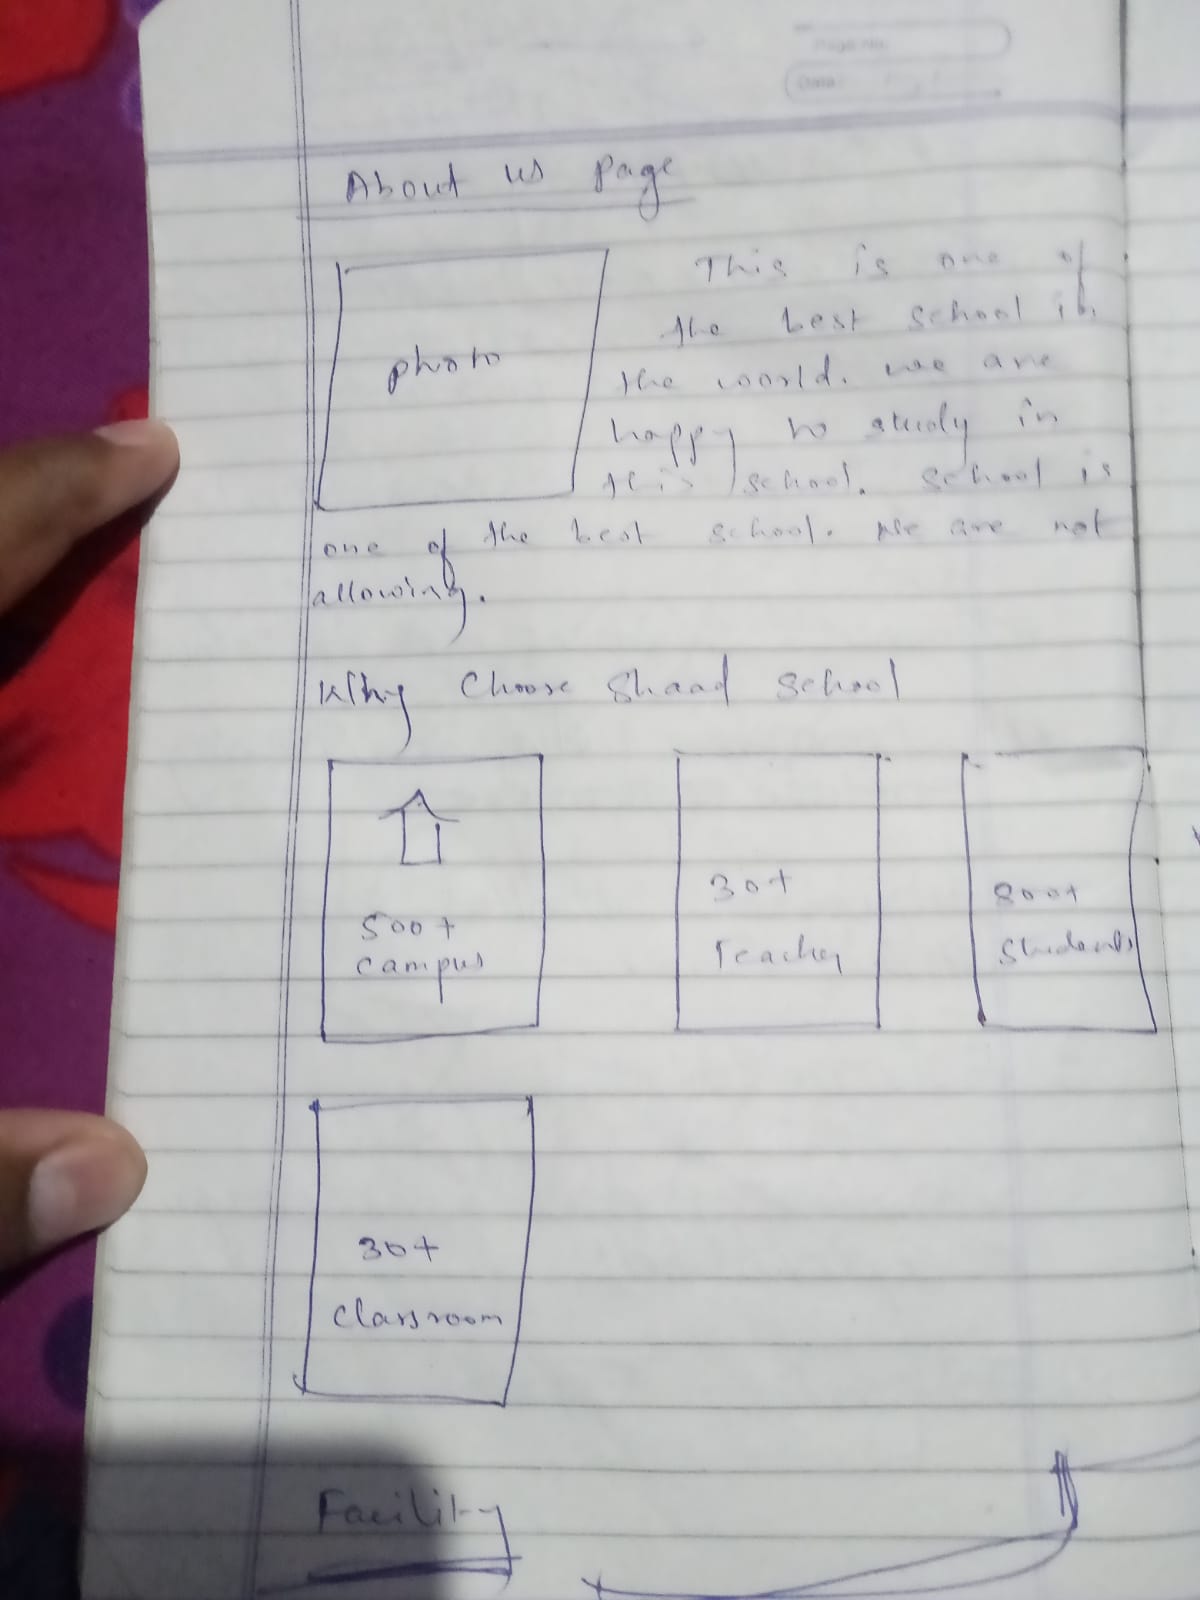 Page No.
Date:
About us page
photo
This is one of
the best school in
the world. we are
happy to study in
this school. school is
one of the best school. We are not
allowing.
Why Choose Shaad School
500+
campus
30+
Teacher
800+
Students
30+
Classroom
Facility